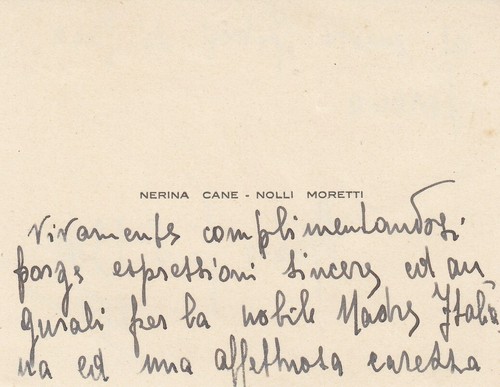 NERINA CANE - NOLLI MORETTI
vivamente complimentandosi
porge espressioni sincere ed au
gurali per la nobile Madre Italia
na ed una affettuosa carezza